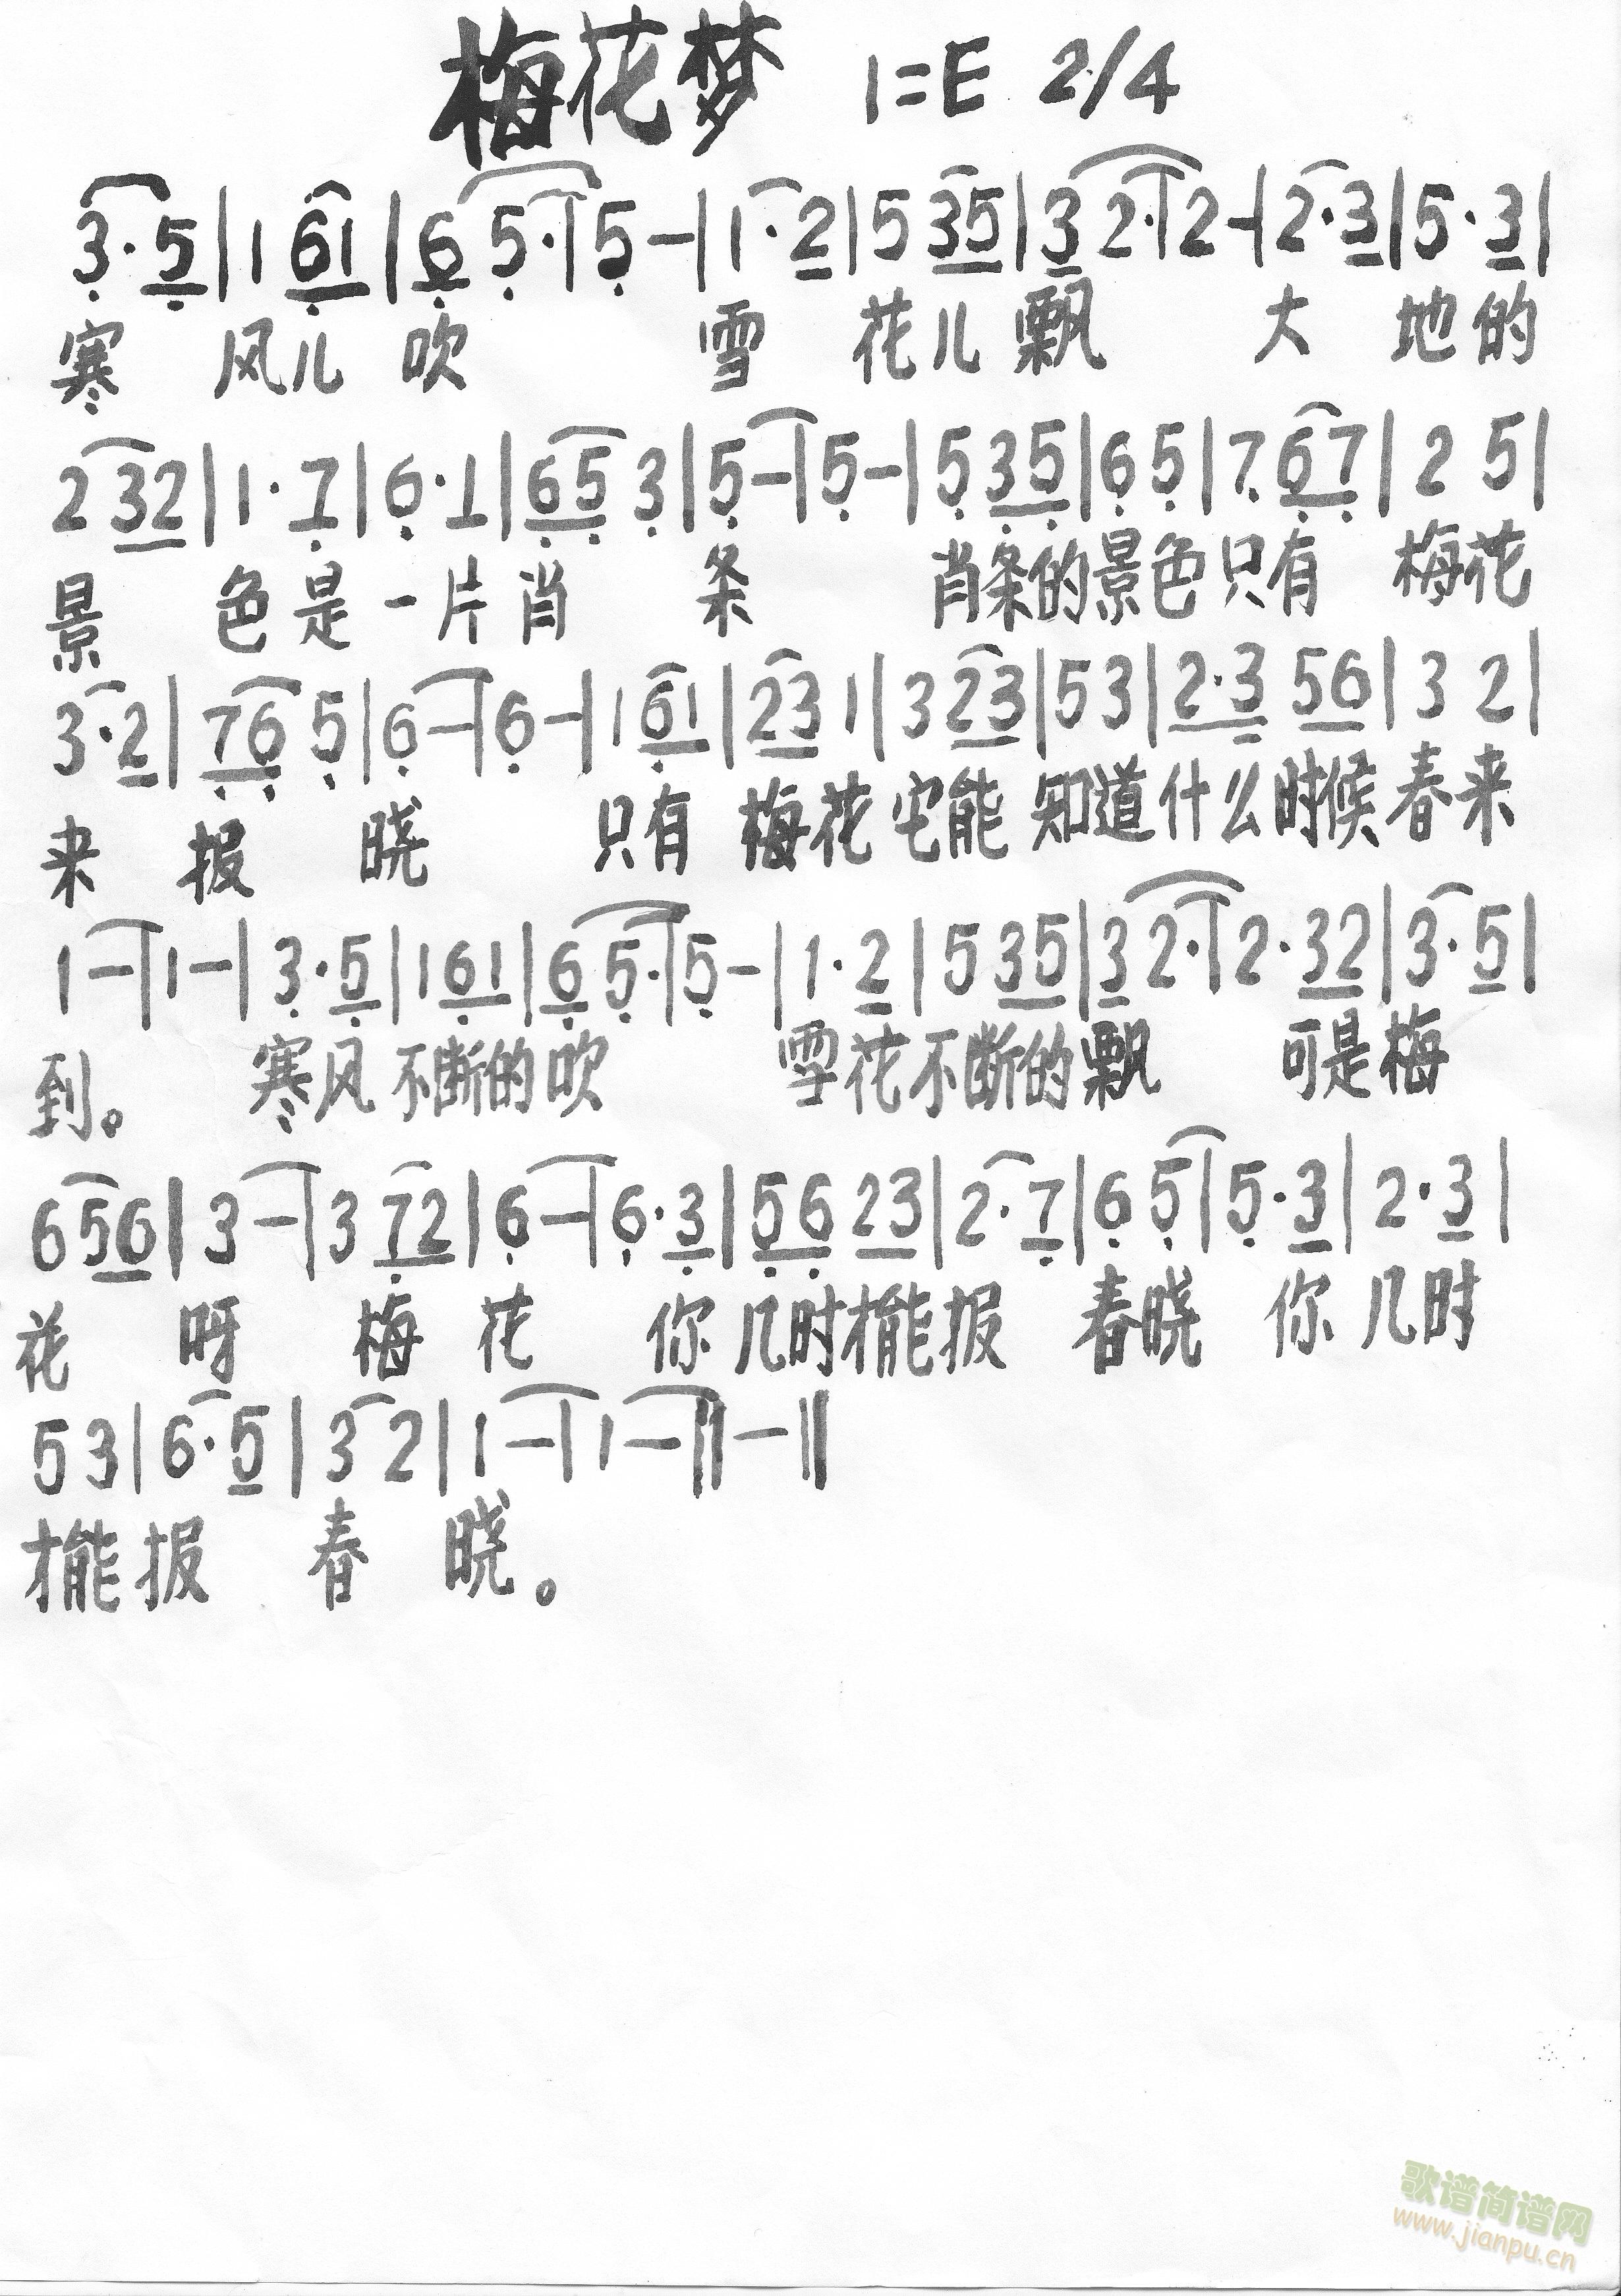 梅花梦 1=E 2/4
3·5|1 61|6 5·|5-|1·2|5 35|3 2·|2-|2·3|5·3|
寒 风儿 吹 雪 花儿飘 大 地的
2 32|1·7|6·1|65 3|5-|5-|5 35|6 5|7 67|2 5|
景 色是一片肖 条 肖条的景色只有 梅花
3·2|76 5|6-|6-|1 61|23 1|3 23|5 3|2·3 56|3 2|
来 报 晓 只有 梅花它能 知道什么时候春来
1-|1-|3·5|1 61|6 5·|5-|1·2|5 35|3 2·|2·32|3·5|
到。 寒风不断的吹 雪花不断的飘 可是梅
6 56|3-|3 72|6-|6·3|56 23|2·7|6 5|5·3|2·3|
花 呀 梅 花 你几时才能报 春晓 你几时
5 3|6·5|3 2|1-|1-‖-‖
才能报 春 晓。
歌谱简谱网
www.jianpu.cn